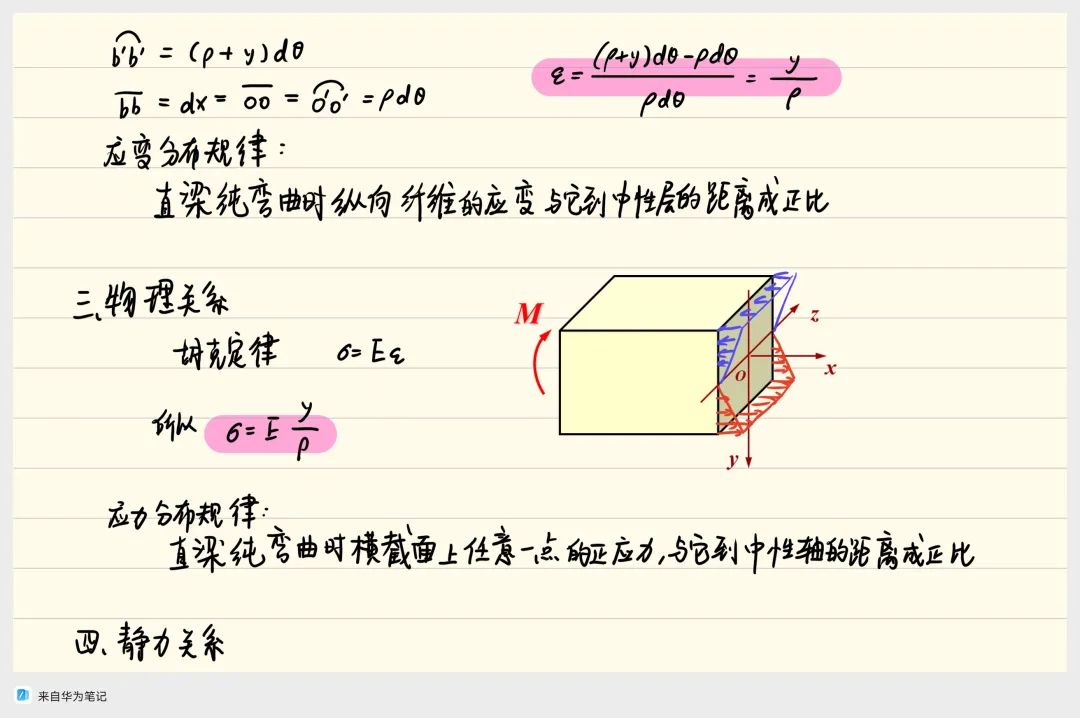 b'b' = (ρ+y)dθ
bb = dx = oo = o'o' = ρdθ
ε = ((ρ+y)dθ-ρdθ)/(ρdθ) = y/ρ
应变分布规律：
直梁纯弯曲时纵向纤维的应变与它到中性层的距离成正比
三、物理关系
胡克定律 σ=Eε
所以 σ=E y/ρ
M
z
o
x
y
应力分布规律：
直梁纯弯曲时横截面上任意一点的正应力,与它到中性轴的距离成正比
四、静力关系
来自华为笔记